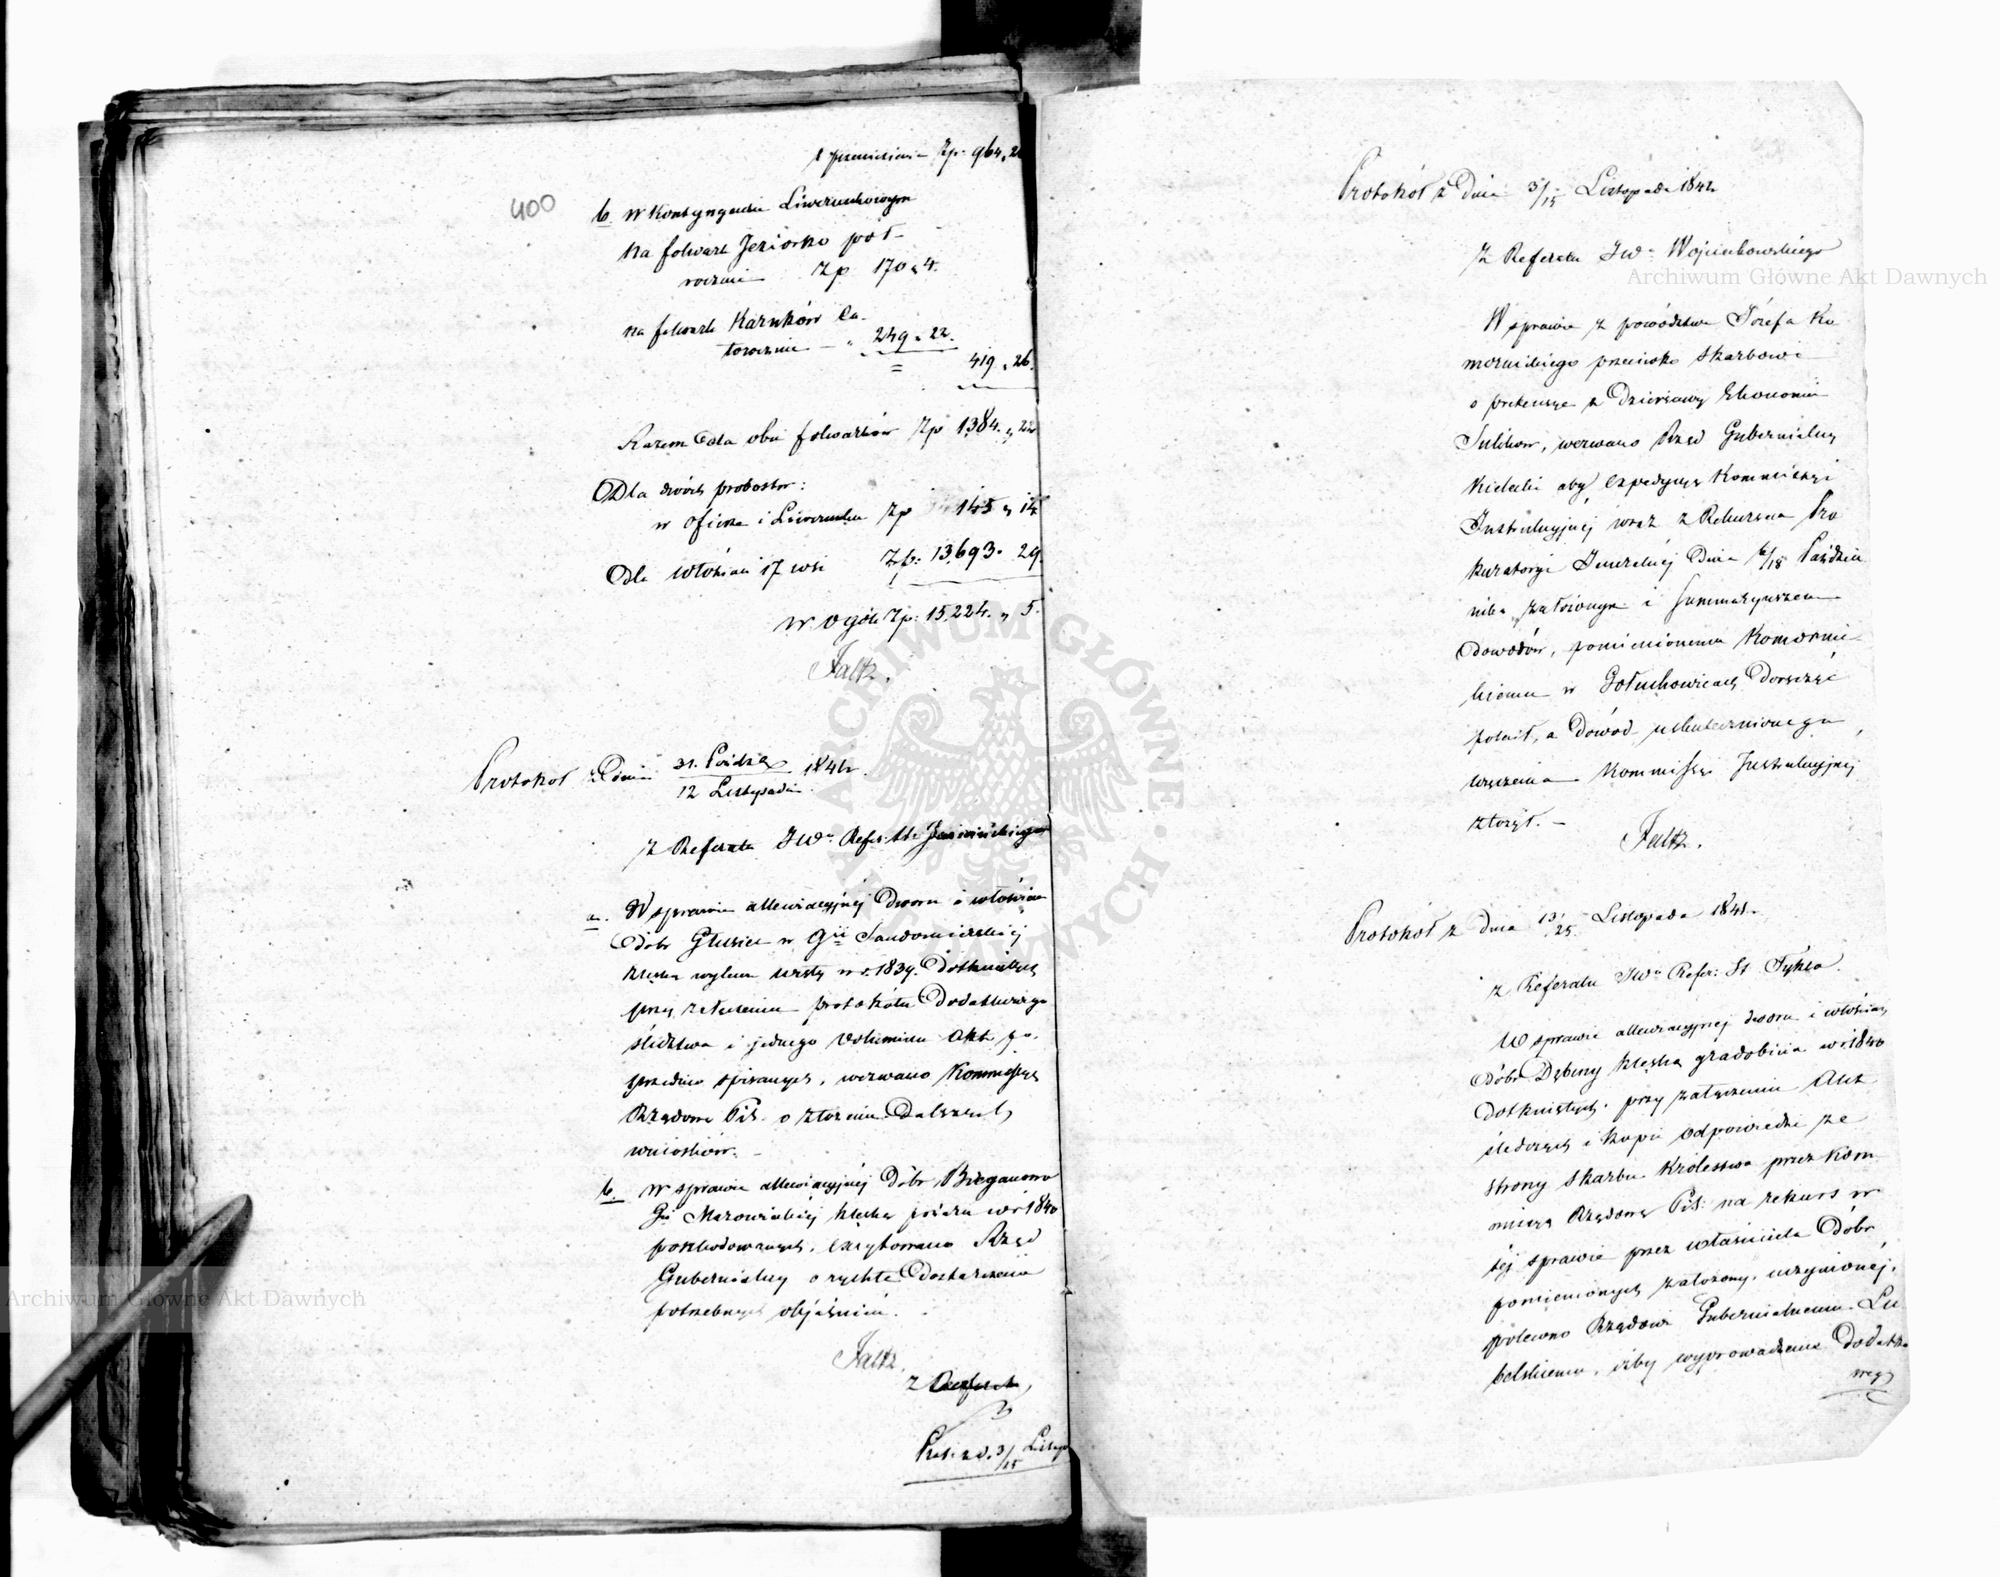 z przeniesienia Zp. 964 „ 2
400
b. w Kontyngensie Liwerunkowym
na folwark Jeziorko pół-
rocznie Zp 170 „ 4.
na folwark Karsków ca-
łorocznie — „ 249 „ 22.
419 „ 26.
Razem dla obu folwarków Zp 1,384. „ 22
Dla dwóch probostw:
w ofierze i Liwerunku Zp 145 „ 14
Dla włościan 17 wsi Zp. 13,693. 29.
w ogóle Zp. 15,224. „ 5.
Faltz.
Protokół z Dnia 31. Paźdz. / 12 Listopada 1841 r.
Z Referatu JWo Refer. St.
a. W sprawie allewiacyjnej Dworu i włościan
Dóbr Głusiec w Gii Sandomierskiej
klęską wylewu wody w r. 1839. Dotkniętych
przy załączeniu protokółu Dodatkowego
śledztwa i jednego Voluminu Akt po-
przednio spisanych, wezwano Kommissyę
Rządową P. i S. o złożenie Dalszych
wniosków. —
b. W sprawie allewiacyjnej Dóbr Bieganowo
Gii Mazowieckiej klęską pożaru w r. 1840
poszkodowanych, excytowano Rząd
Gubernialny o rychłe Dostarczenie
potrzebnych objaśnień.
Faltz.
Z
Prot. z d. 3/15 Listop
Protokół z Dnia 3/15 Listopada 1841 r.
Z Referatu JWo Wojciechowskiego
W sprawie z powództwa Józefa Ko-
mornickiego przeciwko Skarbowi
o pretensye z Dzierżawy Ekonomii
Sulików, wezwano Rząd Gubernialny
Kielecki aby expedycyę Kommissyi
Instrukcyjnej wraz z Rekursem Pro
kuratoryi Jeneralnej Dnia 6/18 Paździer
nika założonym i Summaryuszem
Dowodów, pomienionemu Komorni-
ckiemu w Gołuchowicach Doręczyć
polecił, a Dowód uskutecznionego
wręczenia Kommissyi Instrukcyjnej
złożył. —
Faltz.
Protokół z Dnia 13/25 Listopada 1841.
z Referatu JWo Refer: St. Tykla.
W sprawie allewiacyjnej dworu i włościan
Dóbr Dębiny klęską gradobicia w r. 1840
Dotkniętych, przy załączeniu Akt
śledczych i kopii odpowiedzi ze
strony Skarbu Królestwa przez Kom
missyę Rządową P. i S. na rekurs w
tej sprawie przez właściciela Dóbr
pomienionych założony, uczynionej,
polecono Rządowi Gubernialnemu Lu
belskiemu, iżby wyprowadzenie Dodatko
wego